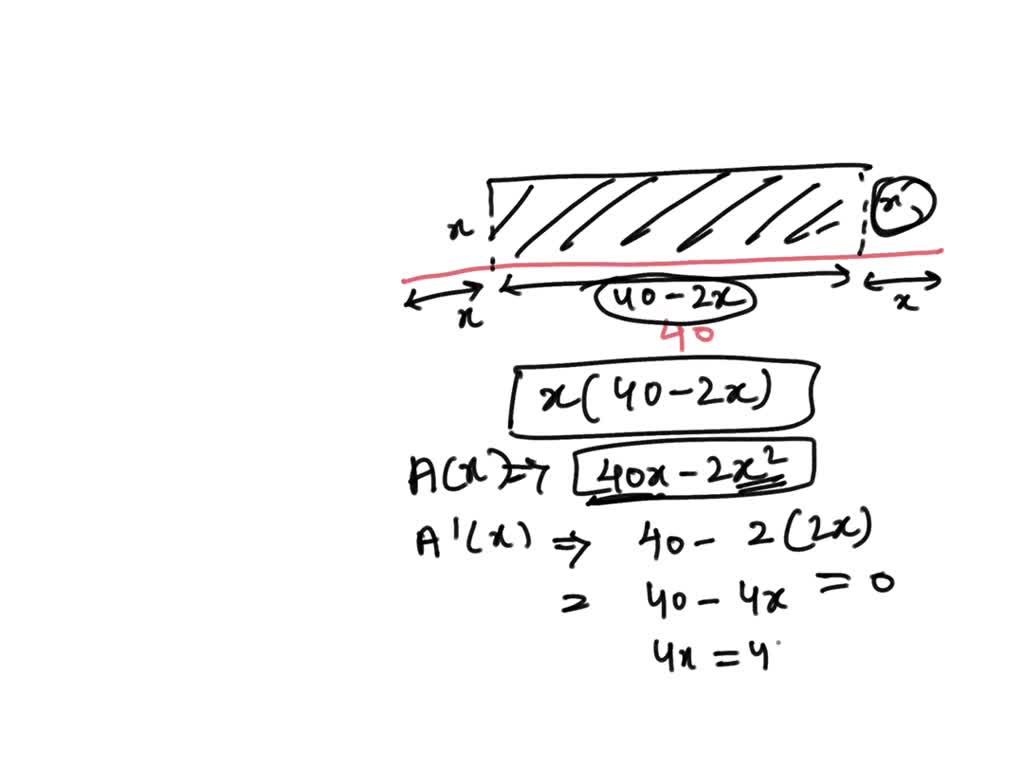 x x
40-2x
x x
40
x(40-2x)
A(x) ⇒ 40x-2x²
A'(x) ⇒ 40- 2(2x)
= 40-4x = 0
4x = 4